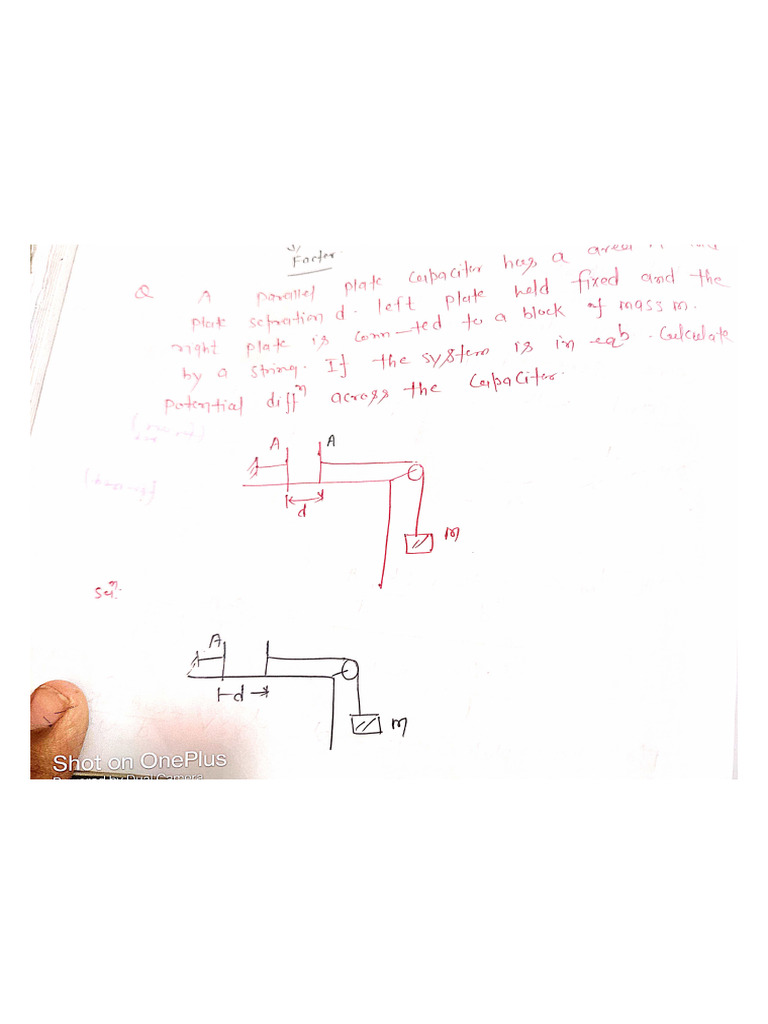 Factor.
Q A parallel plate Capaciter has a area
plate sepration d. left plate held fixed and the
right plate is conn-ted to a block of mass m.
by a string. If the system is in eqb. Calculate
potential diffⁿ across the Capaciter.
A A
d
m
Solⁿ.
A
d
m
Shot on OnePlus
Powered by Dual Camera